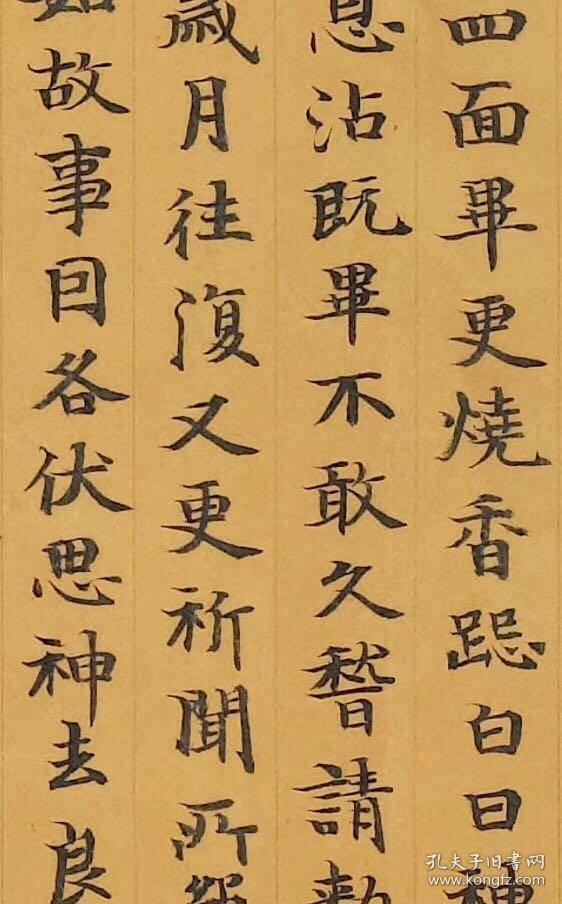 四面畢更燒香跽白曰神
沾既畢不敢久稽請勅
歲月往復又更祈聞所
如故事囙各伏思神去良
孔夫子旧书网
www.kongfz.com